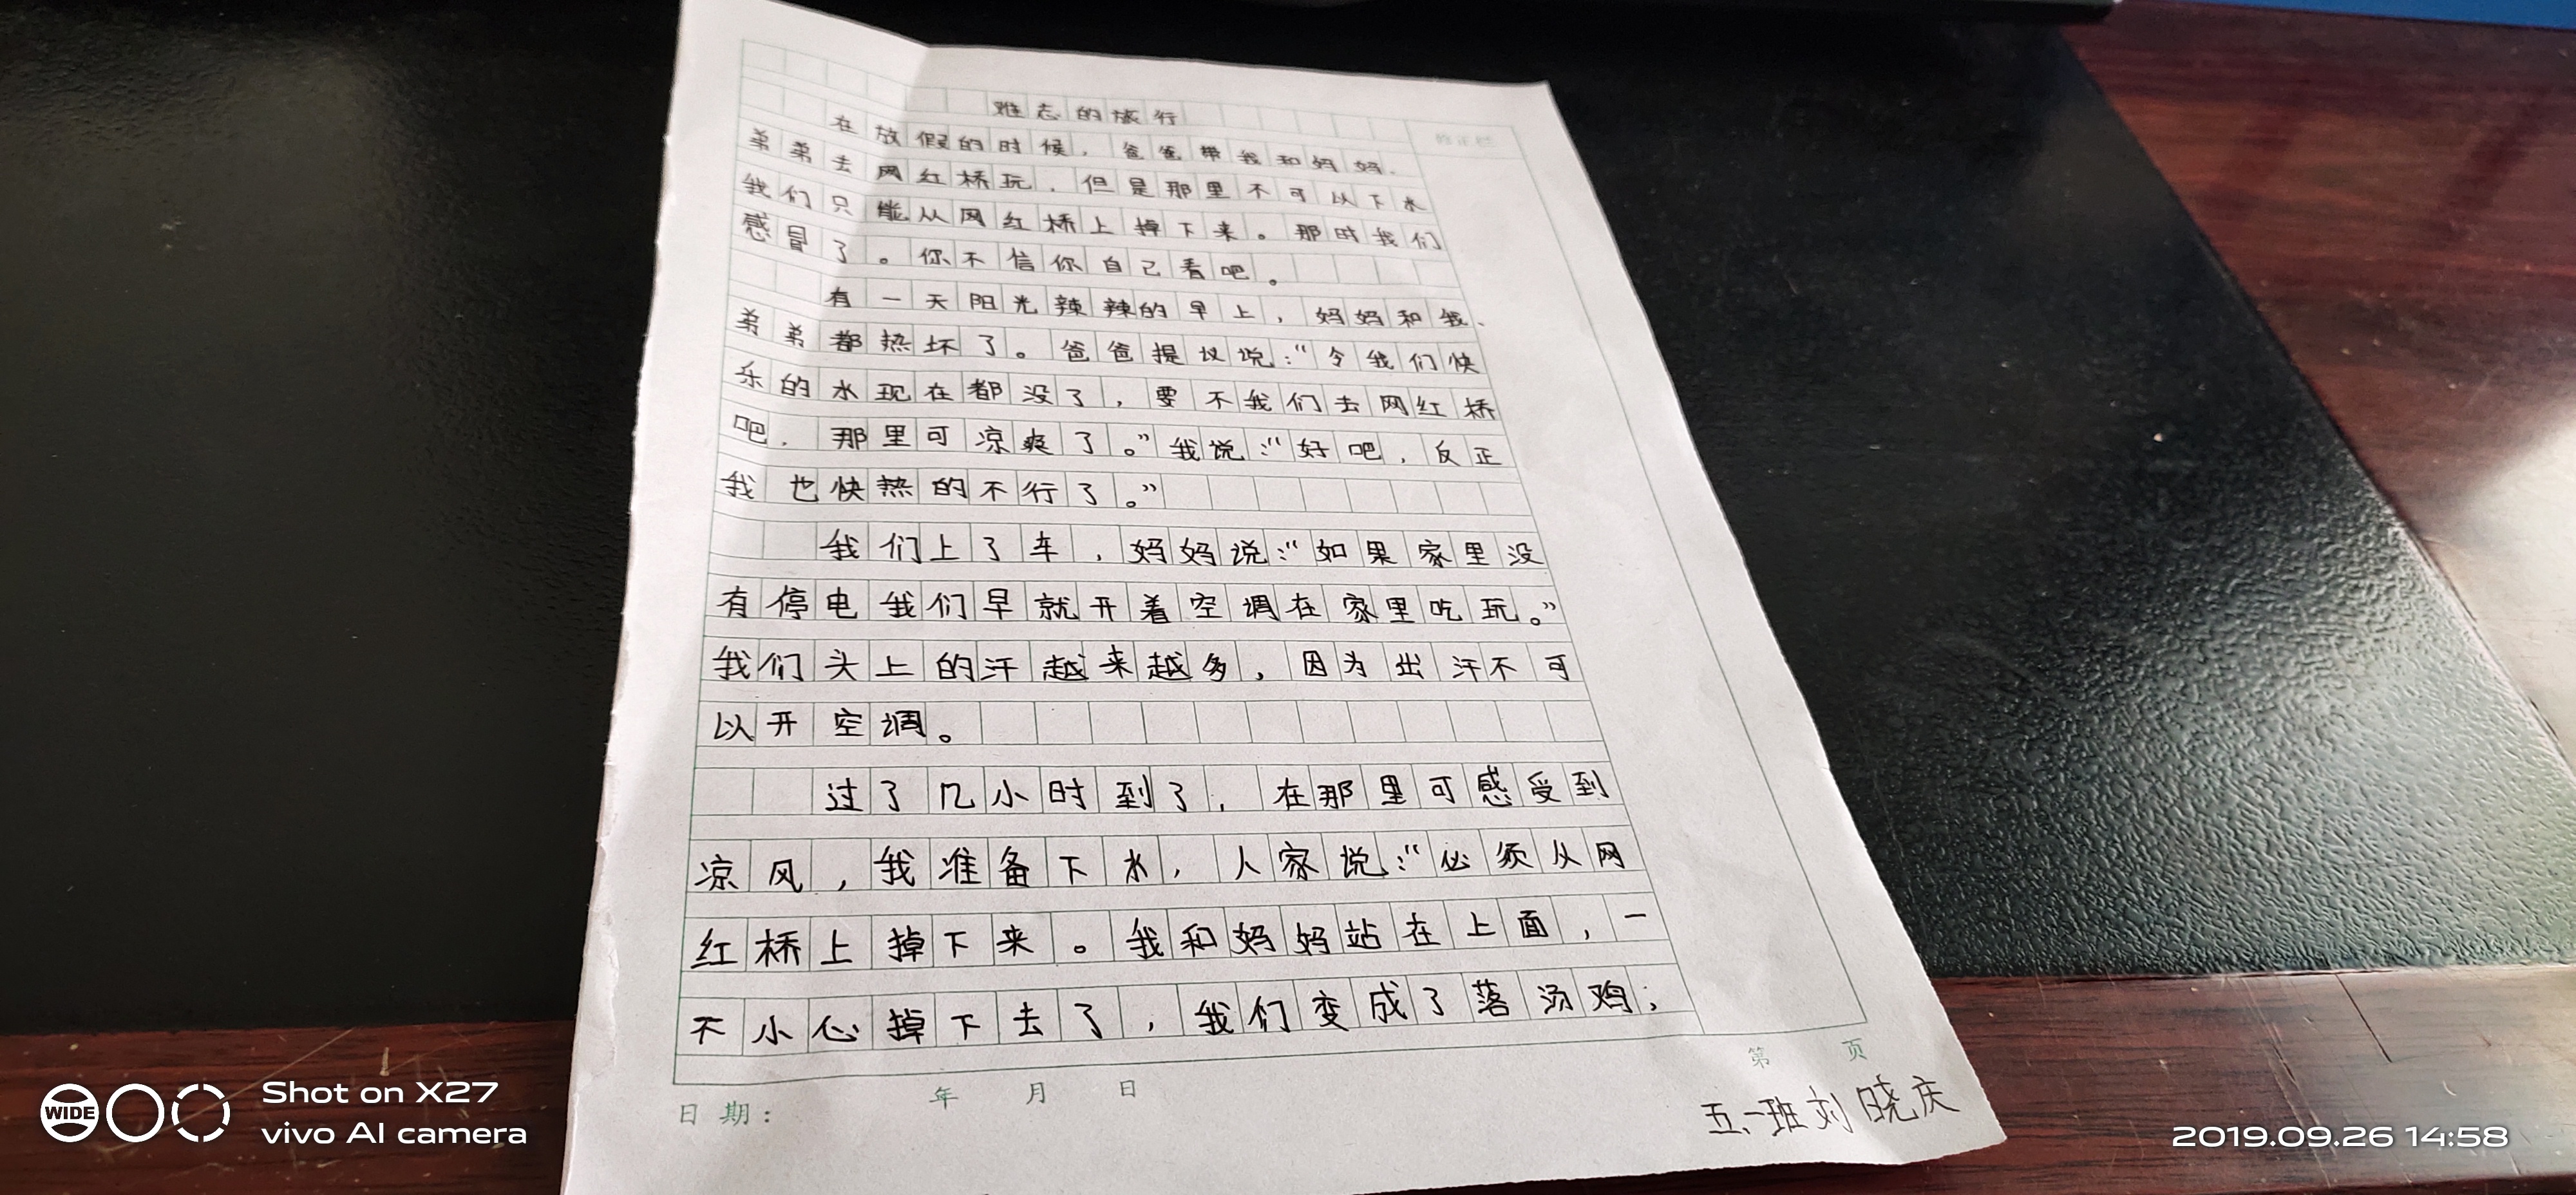 难忘的旅行
修正栏
在放假的时候，爸爸带我和妈妈、
弟弟去网红桥玩，但是那里不可以下水
我们只能从网红桥上掉下来。那时我们
感冒了。你不信你自己看吧。
有一天阳光辣辣的早上，妈妈和我、
弟弟都热坏了。爸爸提议说：“令我们快
乐的水现在都没了，要不我们去网红桥
吧，那里可凉爽了。”我说：“好吧，反正
我也快热的不行了。”
我们上了车，妈妈说：“如果家里没
有停电我们早就开着空调在家里吃玩。”
我们头上的汗越来越多，因为出汗不可
以开空调。
过了几小时到了，在那里可感受到
凉风，我准备下水，人家说：“必须从网
红桥上掉下来。我和妈妈站在上面，一
不小心掉下去了，我们变成了落汤鸡；
第 页
日期： 年 月 日
五、一班刘晓庆
WIDE
Shot on X27
vivo AI camera
2019.09.26 14:58